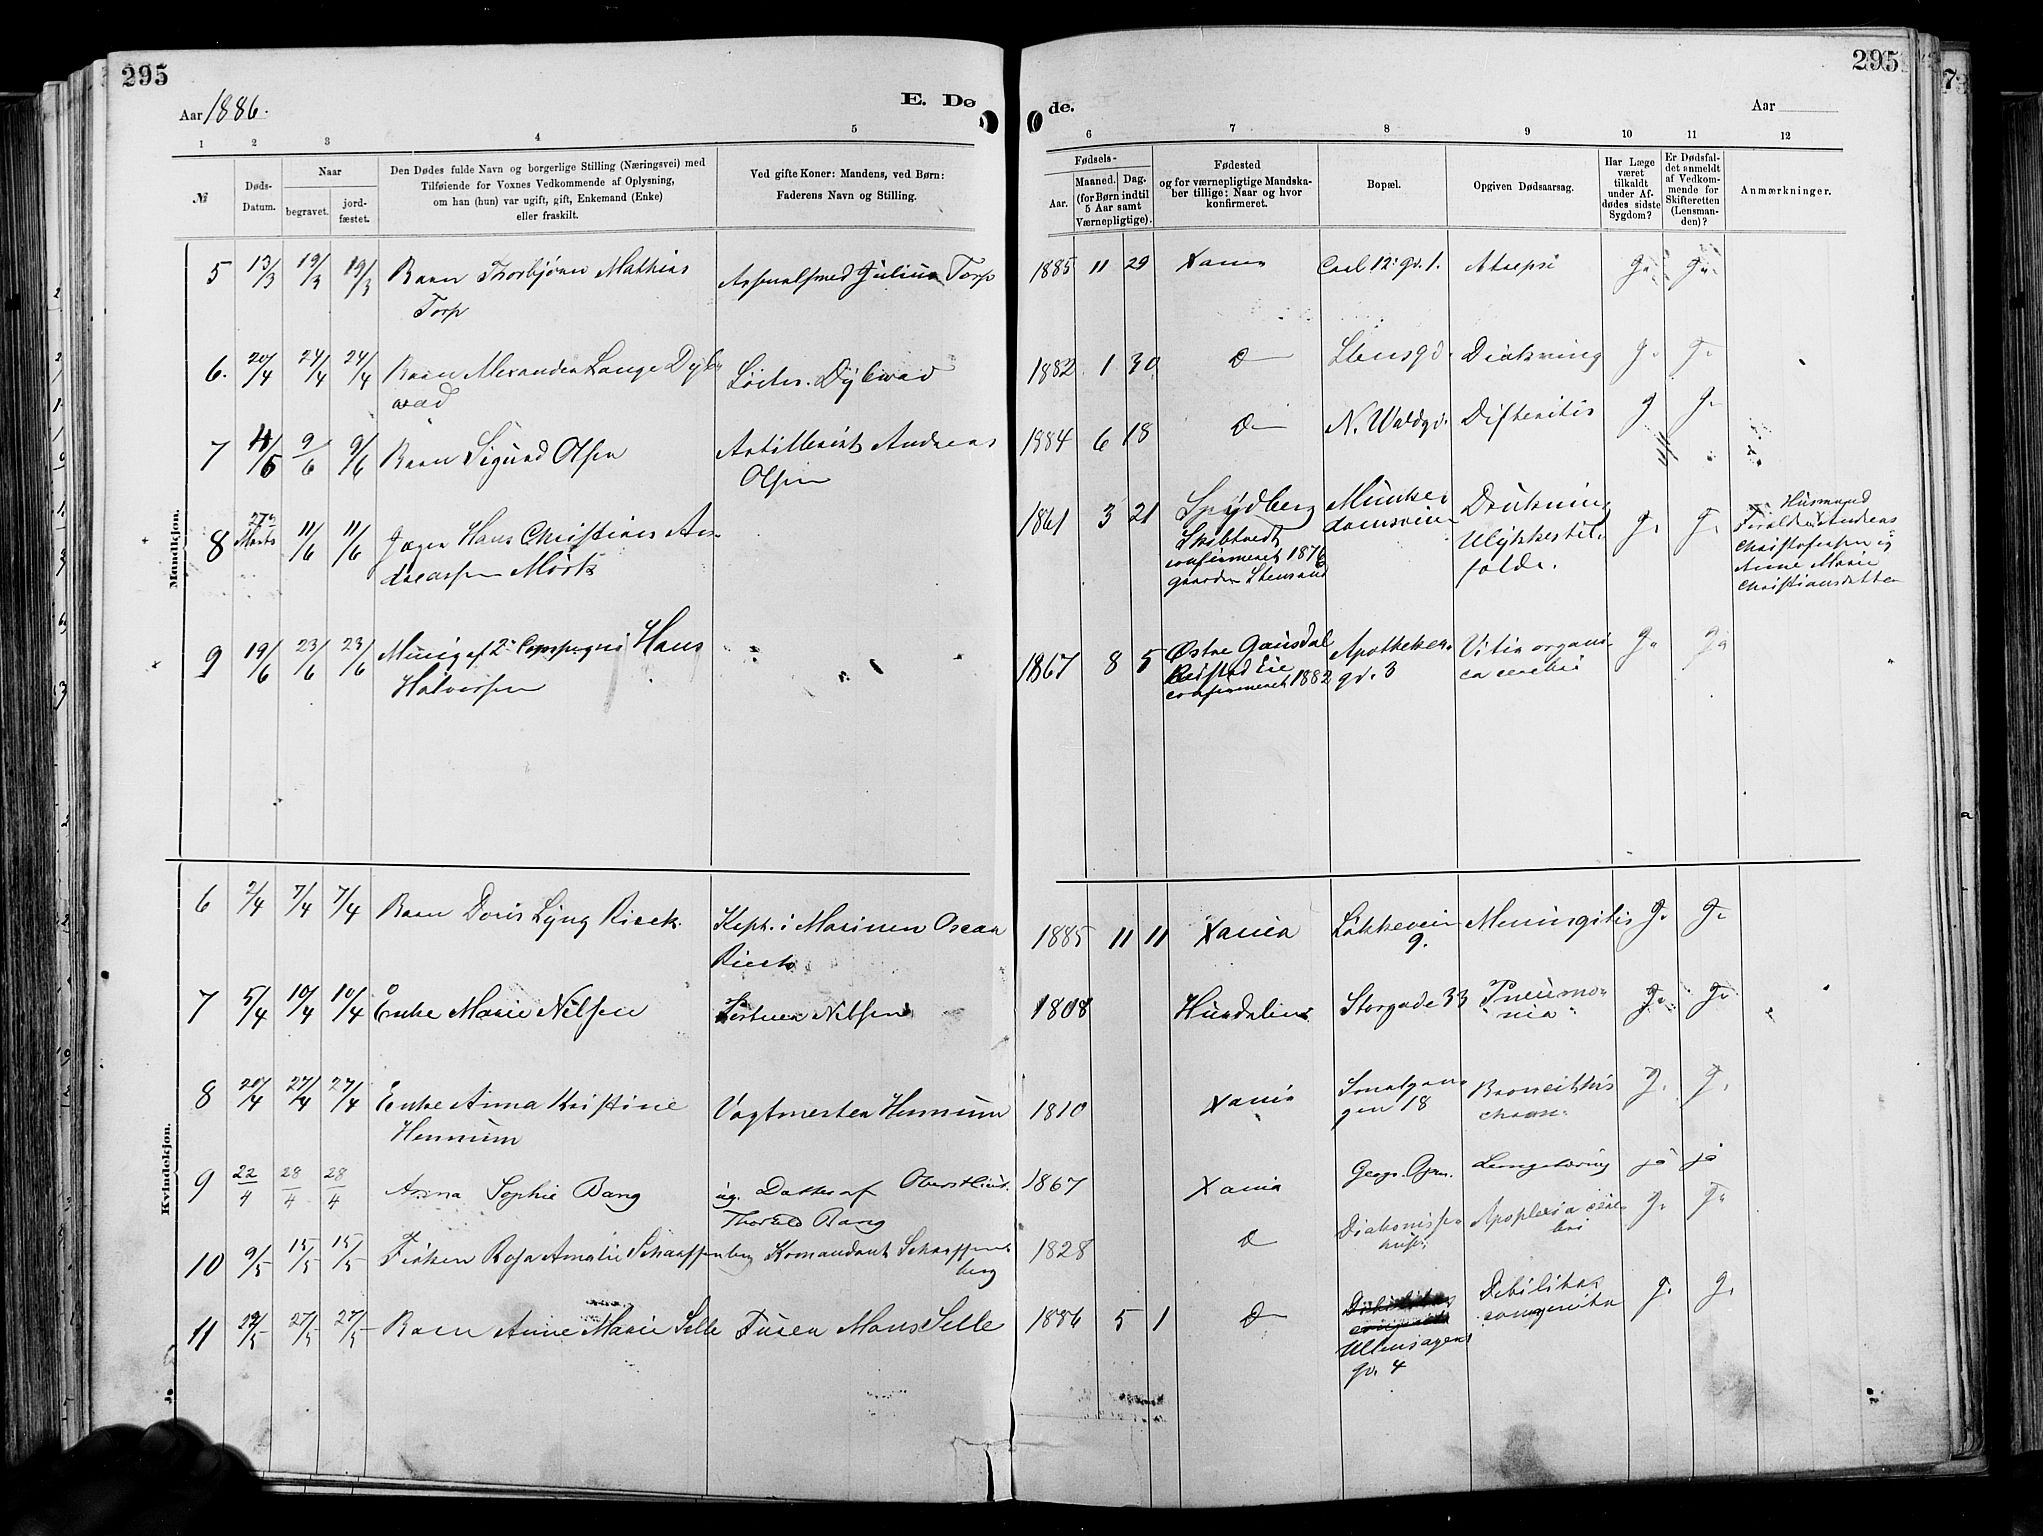 295
295
Aar 1886.
E. Dø
de.
Aar
1 2 3 4 5 6 7 8 9 10 11 12
№
Døds-
Datum.
Naar
begravet.
jord-
fæstet.
Den Dødes fulde Navn og borgerlige Stilling (Næringsvei) med
Tilføiende for Voxnes Vedkommende af Oplysning,
om han (hun) var ugift, gift, Enkemand (Enke)
eller fraskilt.
Ved gifte Koner: Mandens, ved Børn:
Faderens Navn og Stilling.
Fødsels-
Aar.
Maaned. Dag.
(for Børn indtil
5 Aar samt
Værnepligtige).
Fødested
og for værnepligtige Mandska-
ber tillige: Naar og hvor
konfirmeret.
Bopæl.
Opgiven Dødsaarsag.
Har Læge
været
tilkaldt
under Af-
dødes sidste
Sygdom?
Er Dødsfal-
det anmeldt
af Vedkom-
mende for
Skifteretten
(Lensman-
den)?
Anmærkninger.
Mandkjøn.
5 13/3 19/3 19/3 Barn Thorbjörn Mathias Torp
Arsenalsmed Julius Torp
1885 11 29 Xania Carl 12' gd. 1. Atrepsi Ja Ja
6. 20/4 24/4 24/4 Barn Alexander Lange Dyb
wad
Löitn. Dybwad
1882 1 30 D Stensgd. Drukning J. J.
7 9/6 9/6 Barn Sigurd Olsen
Artillerist Andreas
Olsen
1884 6 18 D N. Waldgd. Difteritis J J.
8 Marts 11/6 11/6 Jæger Hans Christian An-
dreassen Mörk
1861 3 21 Spydberg
Skibtvedt
confirmeret 1876
gaarden Stensrud
Munke-
damsveien
Druknin
Ulykkestil-
fælde.
J. J.
Husmand
Forældre Andreas
Christofersen og
Anne Marie
Christiansdatter
9 19/6 23/6 23/6 Menig af 2' Compagni Hans
Halvorsen
1867 8 5 Östre Gausdal
Eie
confirmeret 1882
Apotheker
gd. 3
Vitia organi
ca cordis
Ja Ja
Kvindekjøn.
6 2/4 7/4 7/4 Barn Doris Lyng Rieck
Kapt. i Marinen Oscar
Rieck
1885 11 11 Xania Lökkeveien
9.
Meningitis J. J.
7 5/4 10/4 10/4 Enke Marie Nilsen
Nilsen
1808 Hurdalen Storgade 33 Pneumo-
nia
J. J.
8 20/4 27/4 27/4 Enke Anna Kristine
Hennum
Vagtmester Hennum
1810 Xania Smalgan
gen 18
Bronchitis
chron.
J. J.
9 22/4 28/4 28/4 Anna Sophie Bang
ug. Datter af Oberstlieut.
Thorvald Bang
1867 Xania Geogr. Opm. Lungetæring ja ja
10 9/5 15/5 15/5 Fröken Rosa Amalie Scharffenberg
Komandant Scharffen-
berg
1828 D Diakonisse
hus.
Apoplexia cere
bri
J. Ja
11 27/5 27/5 Barn Anne Marie Selle
Furer Mons Selle
1886 5 1 D
Ullensagers
gd. 4
Debilitas
congenita
J. J.